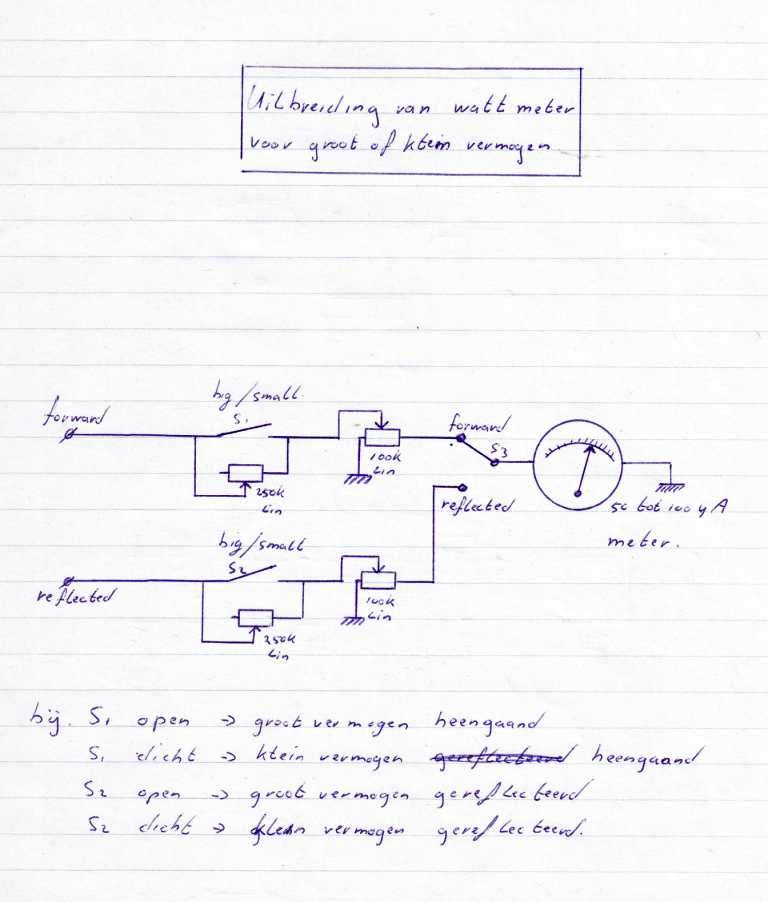 Uitbreiding van watt meter
voor groot of klein vermogen
big/small
forward
S1
forward
S3
100K
Lin
250K
Lin
reflected
50 tot 100 µA
meter.
big/small
S2
reflected
100K
Lin
250K
Lin
bij. S1 open → groot vermogen heengaand
S1 dicht → klein vermogen gereflecteerd heengaand
S2 open → groot vermogen gereflecteerd
S2 dicht → klein vermogen gereflecteerd.